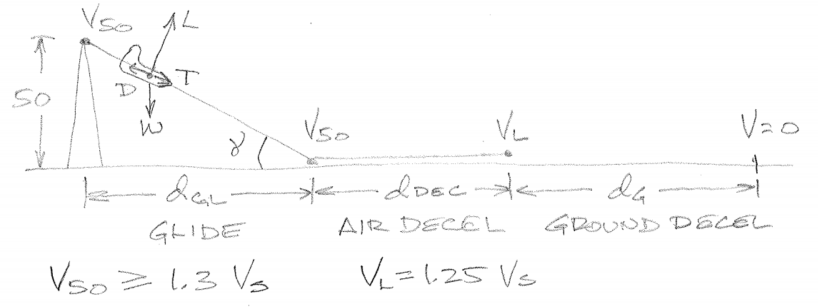 V₅₀ L
50 D T
W
γ V₅₀ V_L V=0
d_GL d_DEC d_G
GLIDE AIR DECEL GROUND DECEL
V₅₀ ≥ 1.3 Vₛ V_L = 1.25 Vₛ